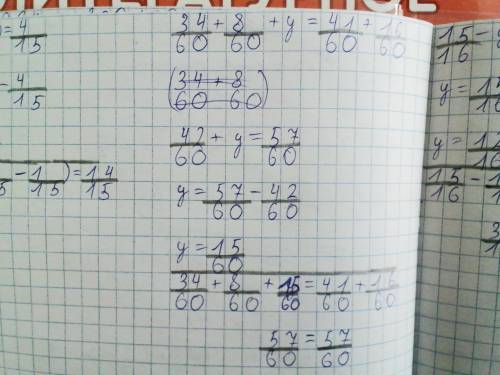 ЛИТЕРАТУРНОЕ
= 4/15
- 4/15
- 1/15) = 14/15
34/60 + 8/60 + y = 41/60 + 16/60
(34/60 + 8/60)
42/60 + y = 57/60
y = 57/60 - 42/60
y = 15/60
34/60 + 8/60 + 15/60 = 41/60 + 16/60
57/60 = 57/60
15/16 -
y =
y =
15/16 -